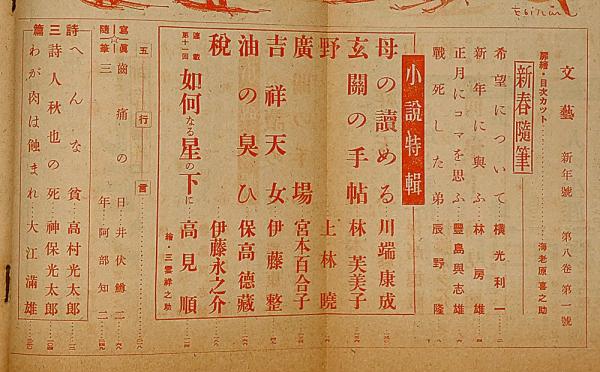 文藝 新年號 第八卷第一號
扉繪・目次カット 海老原喜之助
新春隨筆
希望について 橫光利一
新年に與ふ 林房雄
正月にコマを思ふ 豐島與志雄
戰死した弟 辰野隆
小說特輯
母の讀める 川端康成
玄關の手帖 林芙美子
野 上林曉
廣場 宮本百合子
吉祥天女 伊藤整
油の臭ひ 保高德藏
稅 伊藤永之介
連載第十一回 如何なる星の下に 高見順
繪・三雲祥之助
五行言
寫眞☆隨筆
齒痛の日 井伏鱒二
三年 阿部知二
詩三篇
へんな貧 高村光太郎
詩人秋也の死 神保光太郎
わが肉は蝕まれ 大江滿雄